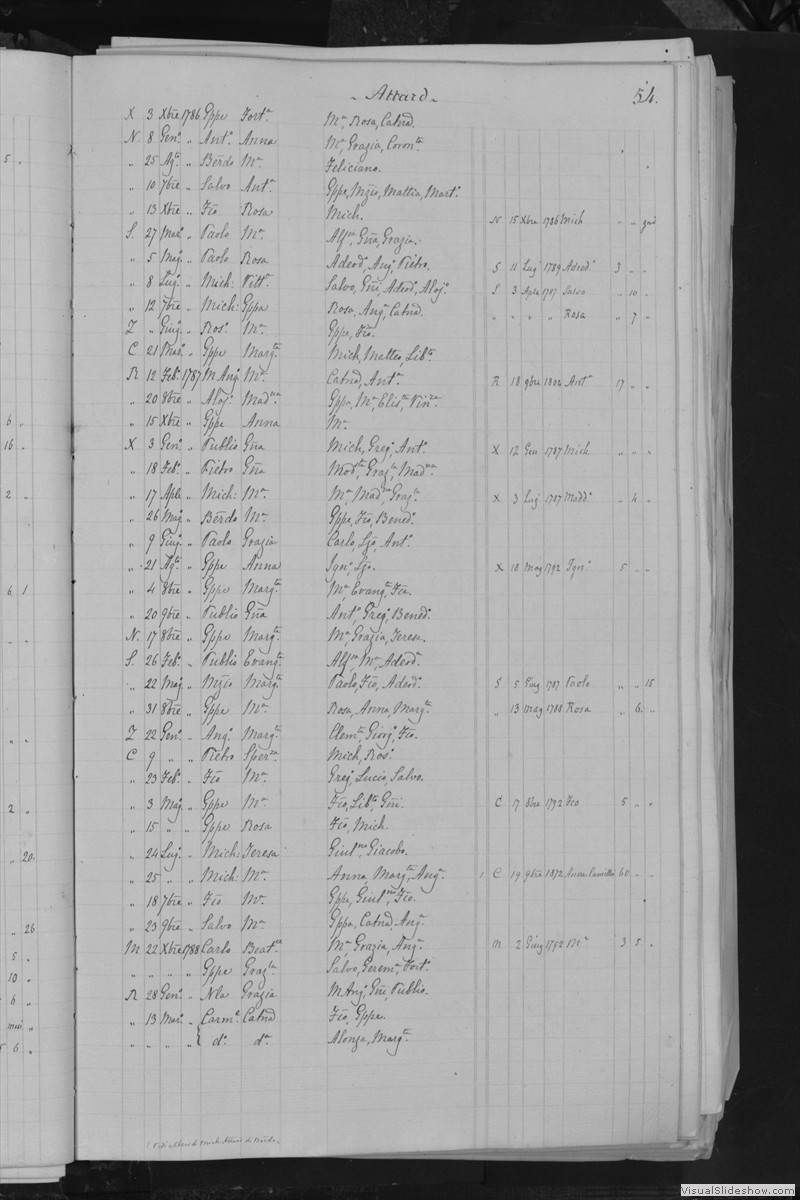 Attard
54.
X 3 Xbre 1786 Gppe Fort.a Ma, Rosa, Catnd.
N 8 Gen.o " Ant.o Anna Ma, Grazia, Coron.ta
" 25 Ag.to " Berdo Ma. Feliciano.
" 10 7bre " Salvo Ant.a Gppe, Mzio, Mattia, Mart.o
" 13 Xbre " Fco Rosa Mich. N 15 Xbre 1786 Mich " "
S. 27 Mar.o " Paolo Ma. Alf.so, Gna, Grazia.
" 5 Mag.o " Paolo Rosa Adeod.o, Ang.o, Pietro. S 11 Lug 1789 Adeod.o 3 " "
" 8 Lug.o " Mich: Vitt.a Salvo, Gni, Adeod.o, Aloj.o S 3 Aple 1787 Salvo " 10 "
" 12 7bre " Mich: Gppa Rosa, Ang.a, Catnd. " " " " Rosa " 7 "
Z " Giug.o " Ros.o Ma. Gppe, Fco.
C 21 Mar.o " Gppe Marg.ta Mich, Matteo, Lib.ta
R 12 Feb.o 1787 M Ang.o Ma. Catnd, Ant.a R 18 9bre 1802 Ant.a 17 " "
" 20 8bre " Aloj.o Mad.na Gppa, Ma, Elis.ta, Vin.za
" 15 Xbre " Gppe Anna Ma.
X 3 Gen.o " Publio Gna Mich, Greg.o, Ant.o X 12 Gen 1787 Mich " " "
" 18 Feb.o " Pietro Gna Mod.ta, Graz.la, Mad.na
" 17 Aple " Mich: Ma. Ma, Mad.na, Graz.la X 3 Lug 1787 Madd.a " 4 "
" 26 Mag " Berdo Ma. Gppa, Fco, Bened.o
" 9 Giug.o " Paolo Grazia Carlo, Ant.o
" 21 Ag.to " Gppe Anna Ign.o X 18 Mag 1792 Ign.o 5 " "
" 4 8bre " Gppe Marg.ta Ma, Evang.ta, Fca.
" 20 9bre " Publio Gna Ant.o, Greg.o, Bened.o
N. 17 8bre " Gppe Marg.ta Ma, Grazia, Teresa.
S. 26 Feb.o " Publio Evang.ta Alf.so, Ma, Adeod.a
" 22 Mag " Mzio Marg.ta Paolo, Fco, Adeod.o S 5 Giug 1787 Paolo " " 15
" 31 8bre " Gppe Ma. Rosa, Anna, Marg.ta " 13 Mag 1788 Rosa " 6 "
Z 22 Gen.o " Ang.o Marg.ta Clem.te, Giorg.o, Fco.
C 9 " " Pietro Sper.za Mich, Ros.o
" 23 Feb.o " Fco Ma. Greg.o, Lucio, Salvo.
" 3 Mag " Gppe Ma. Fco, Lib.ta, Gni. C 17 8bre 1792 Fco 5 " "
" 15 " " Gppe Rosa Fco, Mich.
" 24 Lug.o " Mich: Teresa Giul.no, Giacobo.
" 25 " " Mich: Ma. Anna, Marg.ta, Ang.a 1 C 19 9bre 1872 Anna Camilla 60 " "
" 18 7bre " Fco Ma. Gppe, Giul.no, Fco.
" 23 9bre " Salvo Ma. Gppa, Catnd, Ang.a
M 22 Xbre 1788 Carlo Beat.ce Ma, Grazia, Ang.a M 2 Giug 1792 Ma 3 5 "
" " " " Gppe Graz.la Salvo, Gerem.a, Fort.o
R 28 Gen.o " Nla Grazia M Ang.o, Gni, Publio.
" 13 Mar.o " Carm.o Catnd Fco, Gppa.
" " " " { d.o d.a Alonza, Marg.ta
VisualSlideshow.com